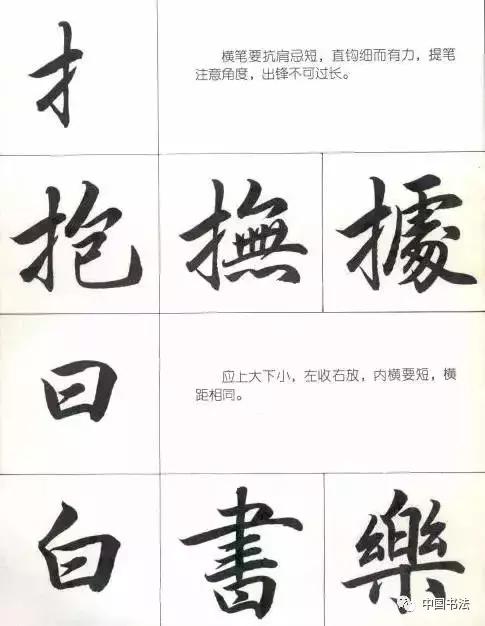 扌
横笔要抗肩忌短，直钩细而有力，提笔
注意角度，出锋不可过长。
抱 撫 據
曰
应上大下小，左收右放，内横要短，横
距相同。
白 書 樂
中国书法